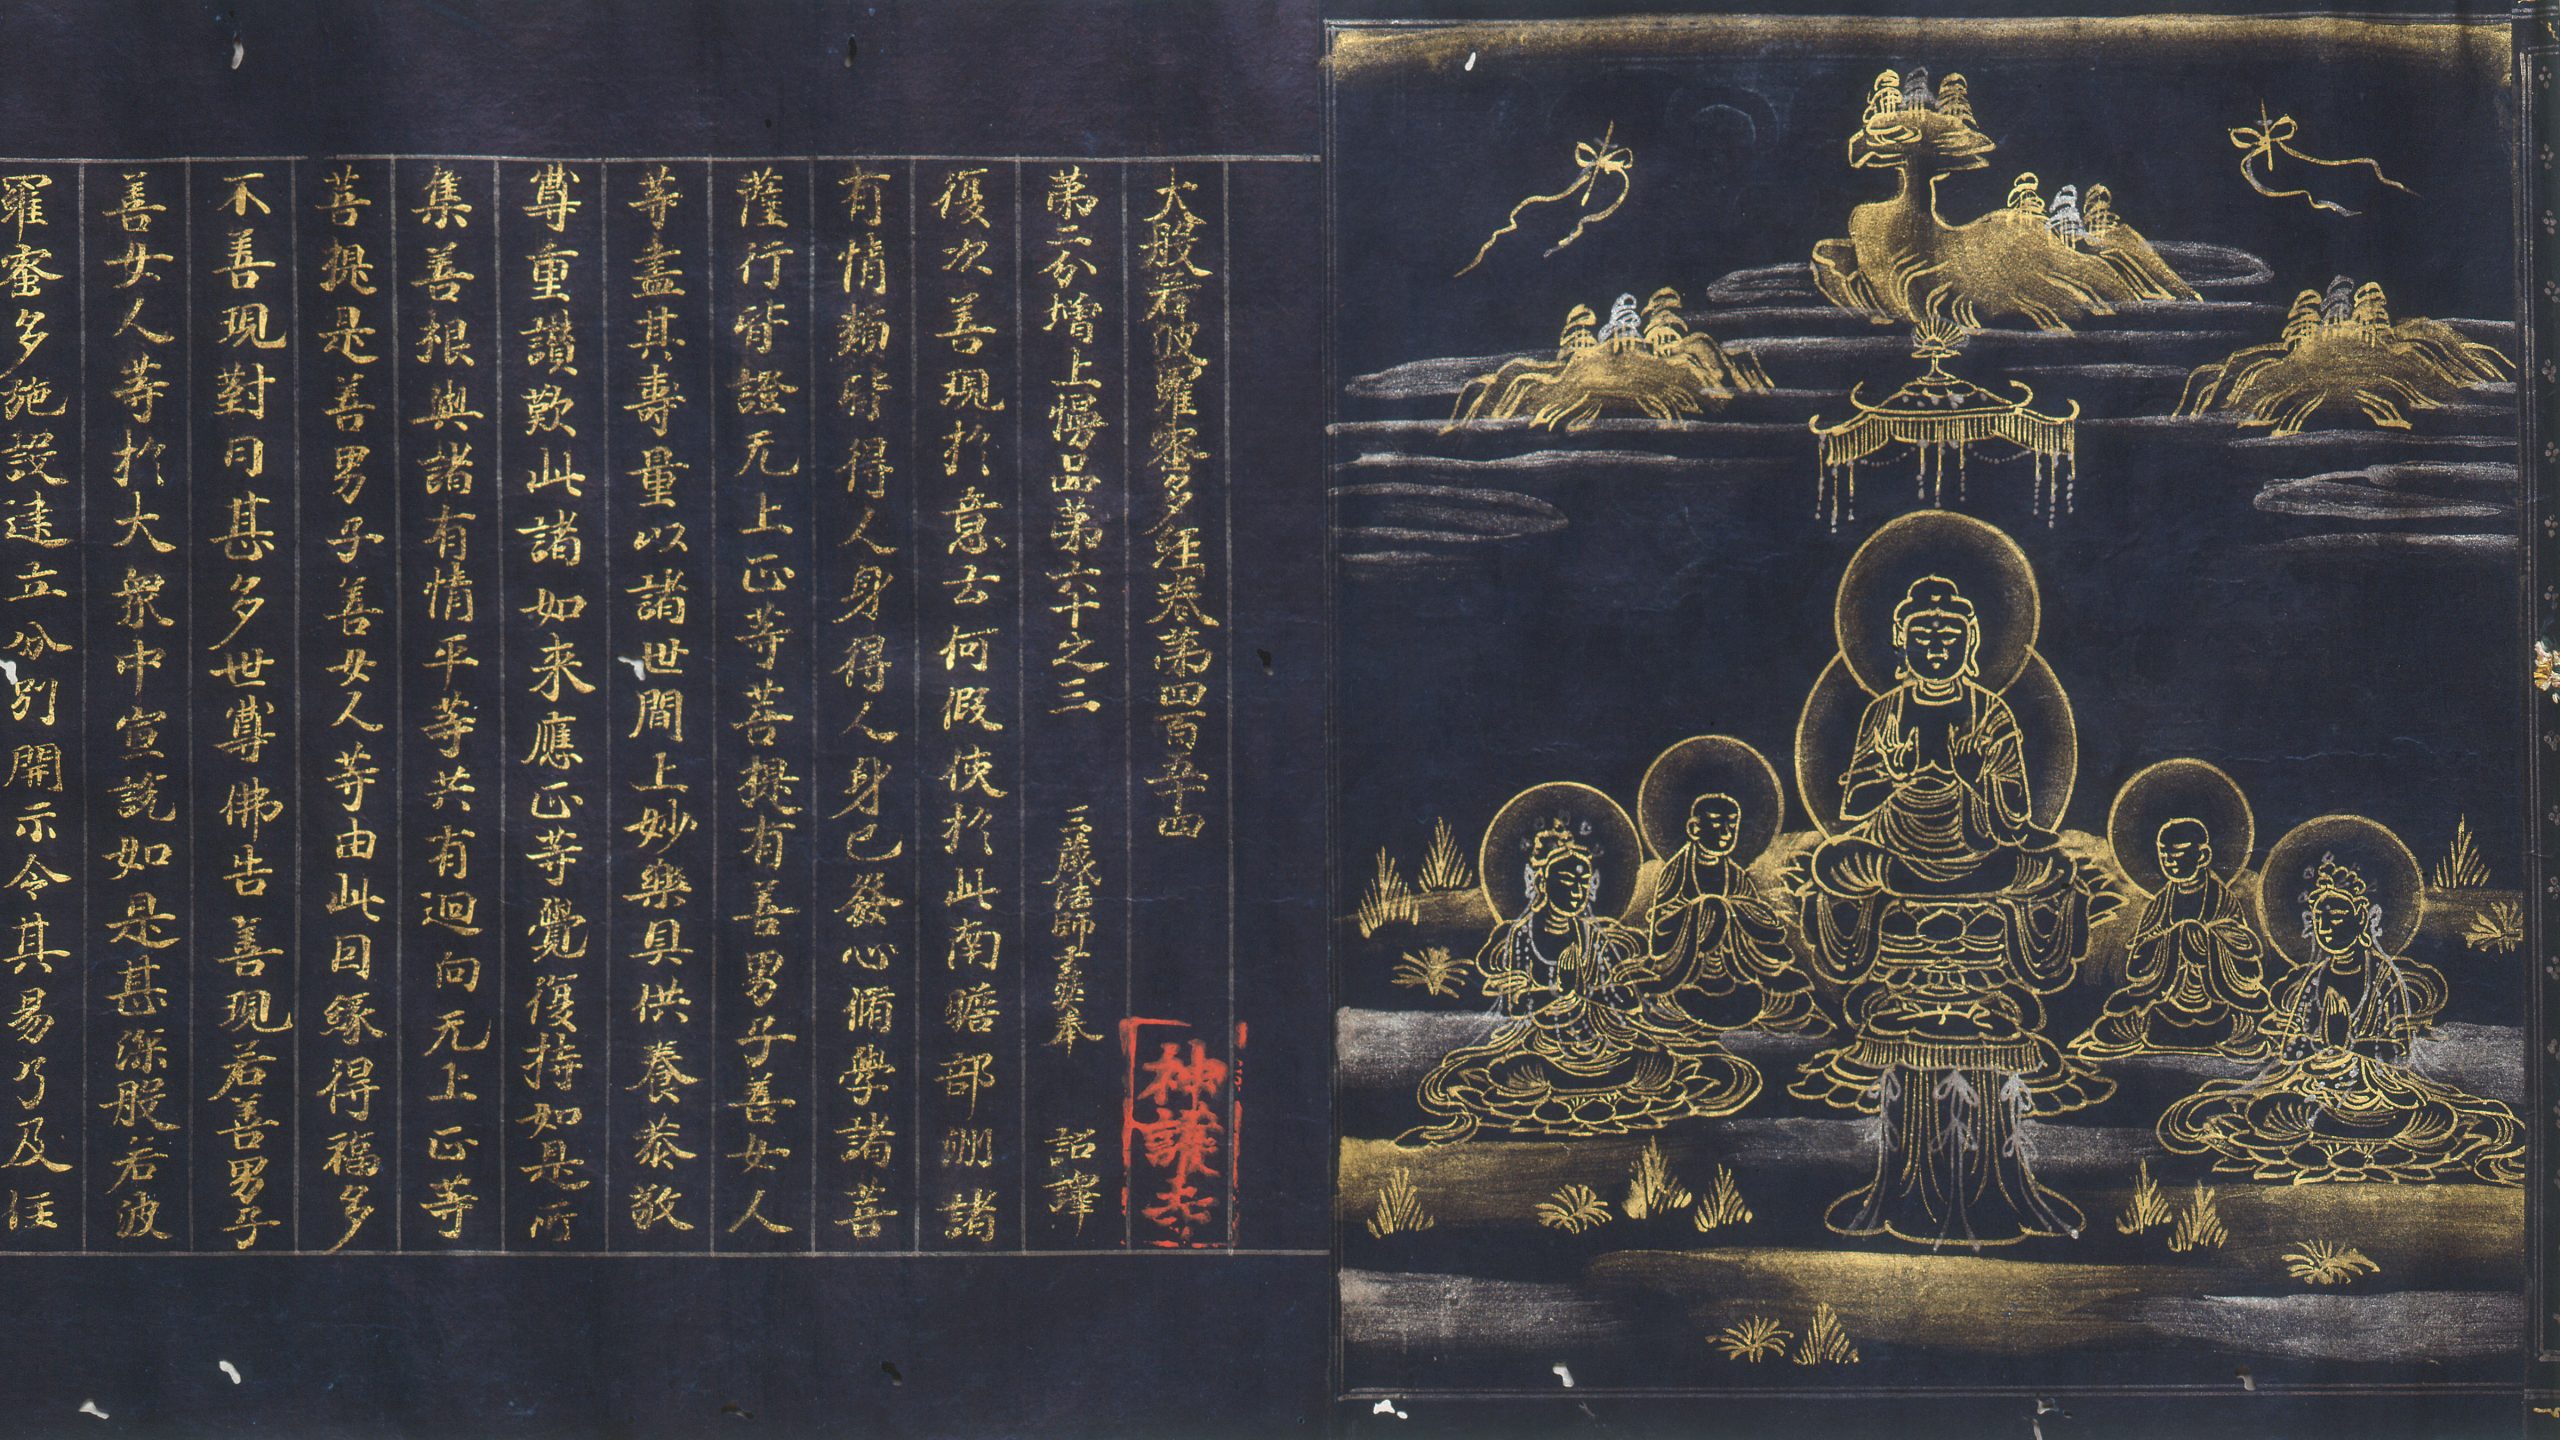 大般若波羅蜜多經卷第四百五十四
神護寺
第二分增上慢品第六十之三 三藏法師玄奘奉 詔譯
復次善現於意云何假使於此南贍部洲諸
有情類皆得人身得人身已發心脩學諸菩
薩行皆證无上正等菩提有善男子善女人
等盡其壽量以諸世間上妙樂具供養恭敬
尊重讚歎此諸如来應正等覺復持如是所
集善根與諸有情平等共有迴向无上正等
菩提是善男子善女人等由此因緣得福多
不善現對曰甚多世尊佛告善現若善男子
善女人等於大衆中宣説如是甚深般若波
羅蜜多施設建立分別開示令其易了及住